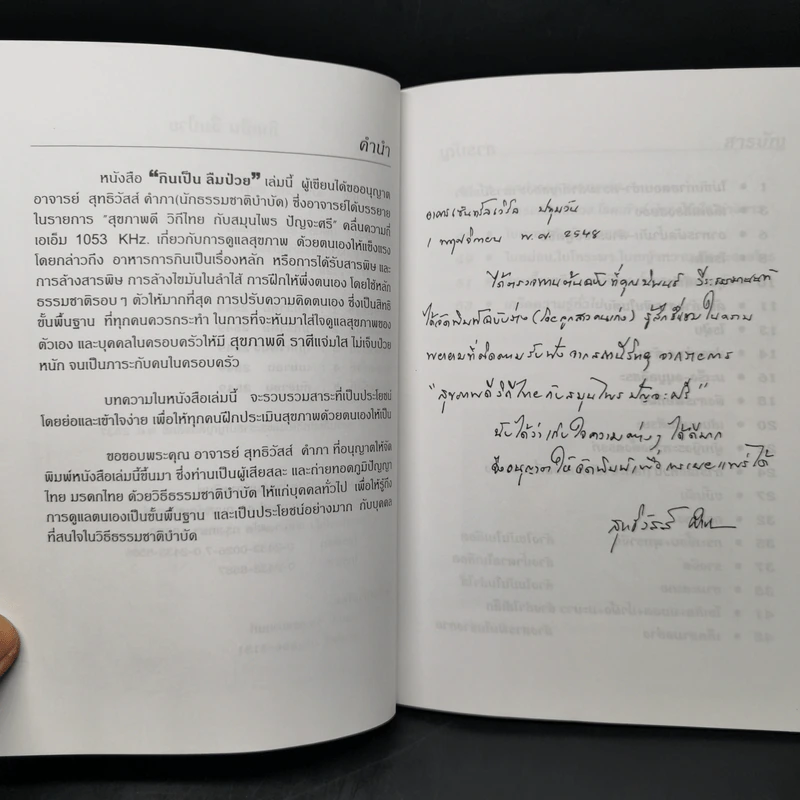 คำนำ
หนังสือ “กินเป็น ลืมป่วย” เล่มนี้ ผู้เขียนได้ขออนุญาต
อาจารย์ สุทธิวัสส์ คำภา(นักธรรมชาติบำบัด) ซึ่งอาจารย์ได้บรรยาย
ในรายการ “สุขภาพดี วิถีไทย กับสมุนไพร ปัญจะศรี” คลื่นความถี่
เอเอ็ม 1053 KHz. เกี่ยวกับการดูแลสุขภาพ ด้วยตนเองให้แข็งแรง
โดยกล่าวถึง อาหารการกินเป็นเรื่องหลัก หรือการได้รับสารพิษ และ
การล้างสารพิษ การล้างไขมันในลำไส้ การฝึกให้พึ่งตนเอง โดยใช้หลัก
ธรรมชาติรอบๆ ตัวให้มากที่สุด การปรับความคิดตนเอง ซึ่งเป็นสิทธิ
ขั้นพื้นฐาน ที่ทุกคนควรกระทำ ในการที่จะหันมาใส่ใจดูแลสุขภาพของ
ตัวเอง และบุคคลในครอบครัวให้มี สุขภาพดี ราศีแจ่มใส ไม่เจ็บป่วย
หนัก จนเป็นภาระกับคนในครอบครัว
บทความในหนังสือเล่มนี้ จะรวบรวมสาระที่เป็นประโยชน์
โดยย่อและเข้าใจง่าย เพื่อให้ทุกคนฝึกประเมินสุขภาพด้วยตนเองให้เป็น
ขอขอบพระคุณ อาจารย์ สุทธิวัสส์ คำภา ที่อนุญาตให้จัด
พิมพ์หนังสือเล่มนี้ขึ้นมา ซึ่งท่านเป็นผู้เสียสละ และถ่ายทอดภูมิปัญญา
ไทย มรดกไทย ด้วยวิธีธรรมชาติบำบัด ให้แก่บุคคลทั่วไป เพื่อให้รู้ถึง
การดูแลตนเองเป็นขั้นพื้นฐาน และเป็นประโยชน์อย่างมาก กับบุคคล
ที่สนใจในวิธีธรรมชาติบำบัด
อาคารเซ็นทรัลเวิร์ล ปทุมวัน
1 พฤศจิกายน พ.ศ. 2548
ได้ตรวจทานต้นฉบับ ที่คุณ
ได้จัดพิมพ์ฉบับร่าง รู้สึกชื่นชมในความ
พยายามที่ติดตามรับฟัง จากสถานีวิทยุ จากรายการ
"สุขภาพดี วิถีไทย กับสมุนไพร ปัญจะศรี"
นับได้ว่าเก็บใจความต่างๆ ได้ดีมาก
จึงอนุญาตให้จัดพิมพ์เพื่อการเผยแพร่ได้
สุทธิวัสส์ คำภา